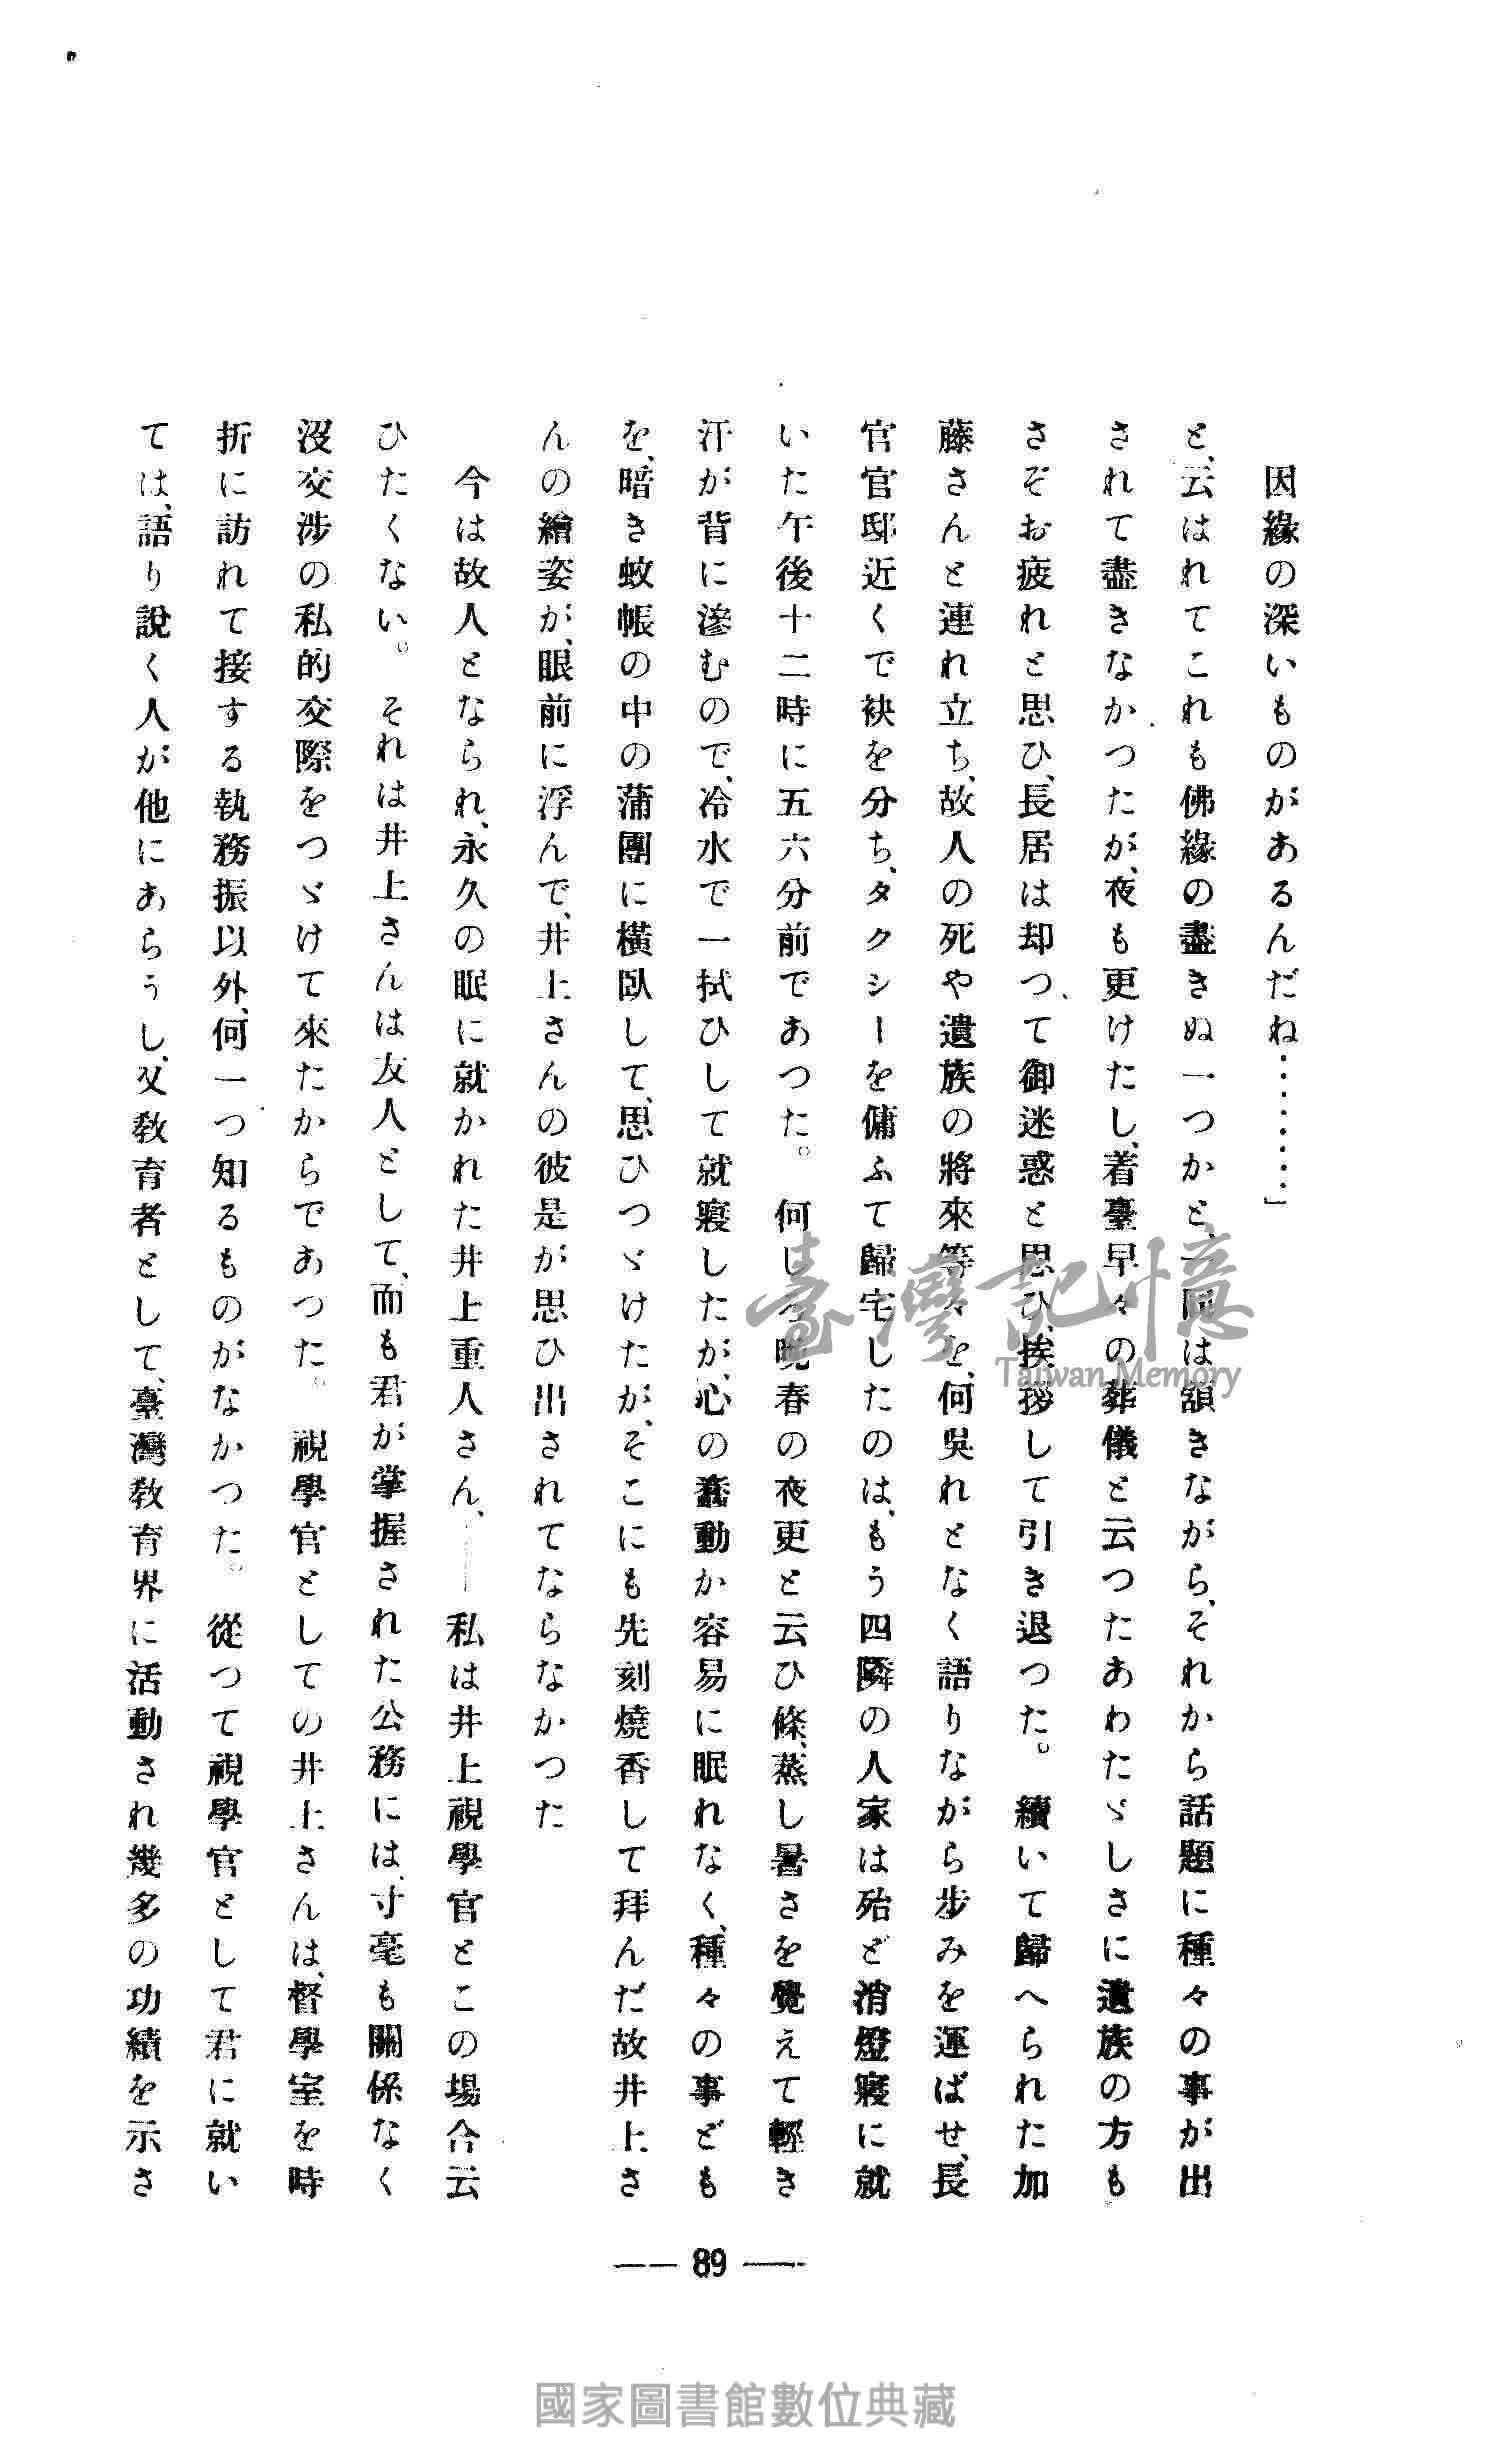 因緣の深いものがあるんだね‥‥‥‥」
と、云はれてこれも佛緣の盡きぬ一つかと、一同は額きながら、それから話題に種々の事が出
されて盡きなかつたが、夜も更けたし、着臺早々の葬儀と云つたあわたゞしさに遺族の方も
さぞお疲れと思ひ、長居は却つて御迷惑と思ひ、挨拶して引き退つた。續いて歸へられた加
藤さんと連れ立ち、故人の死や遺族の將來等々を、何吳れとなく語りながら步みを運ばせ、長
官官邸近くで袂を分ち、タクシーを傭ふて歸宅したのは、もう四隣の人家は殆ど消燈寢に就
いた午後十二時に五六分前であつた。何しろ晩春の夜更と云ひ條、蒸し暑さを覺えて輕き
汗が背に滲むので、冷水で一拭ひして就寢したが、心の蠢動か容易に眠れなく、種々の事ども
を、暗き蚊帳の中の蒲團に橫臥して、思ひつゞけたが、そこにも先刻燒香して拜んだ故井上さ
んの繪姿が、眼前に浮んで、井上さんの彼是が思ひ出されてならなかつた
今は故人となられ、永久の眠に就かれた井上重人さん、――私は井上視學官とこの場合云
ひたくない。それは井上さんは友人として、而も君が掌握された公務には、寸毫も關係なく
沒交涉の私的交際をつゞけて來たからであつた。視學官としての井上さんは、督學室を時
折に訪れて接する執務振以外、何一つ知るものがなかつた。從つて視學官として君に就い
ては、語り說く人が他にあらうし、又敎育者として、臺灣敎育界に活動され幾多の功績を示さ
―― 89 ――
臺灣記憶
Taiwan Memory
國家圖書館數位典藏